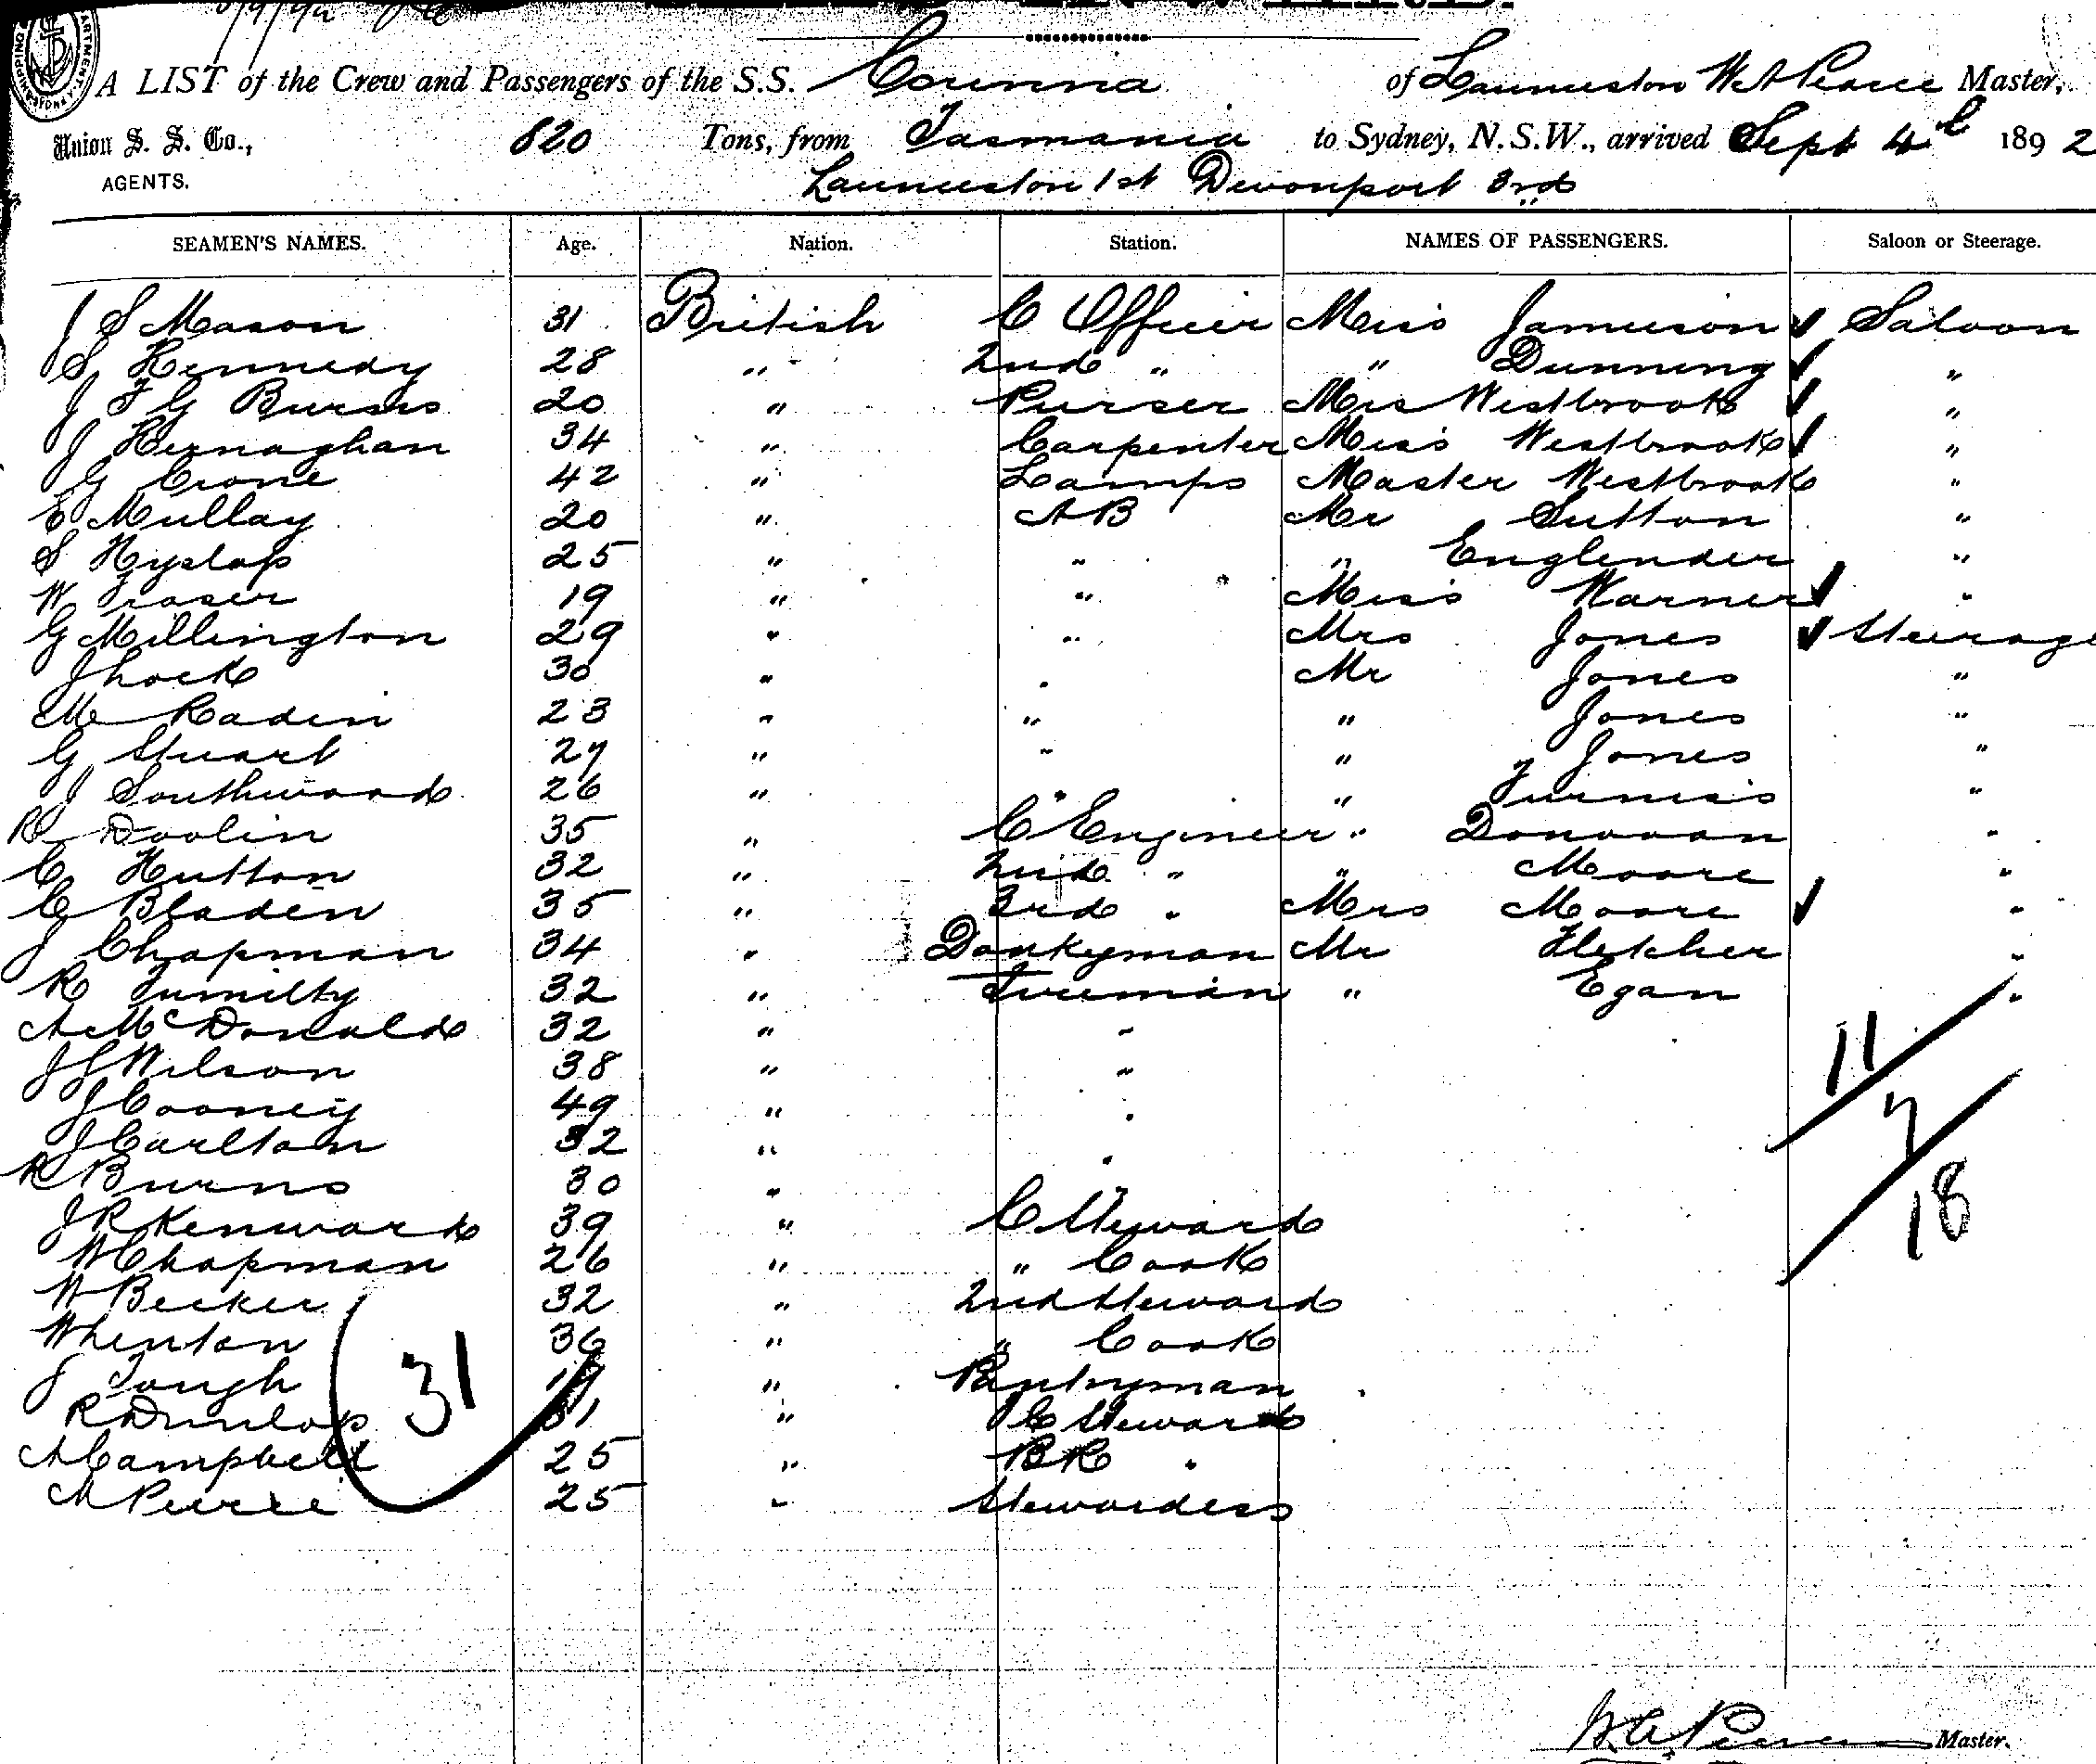 A LIST of the Crew and Passengers of the S.S. Corinna of Launceston W A Pearce Master,
Union S. S. Co., 820 Tons, from Tasmania to Sydney, N.S.W., arrived Sept 4th 1892
AGENTS. Launceston 1st Devonport 3rd
SEAMEN'S NAMES. Age. Nation. Station. NAMES OF PASSENGERS. Saloon or Steerage.
J S Mason 31 British C Officer Miss Jamieson ✓ Saloon
S Kennedy 28 " 2nd " " Dunning ✓ "
J F G Burns 20 " Purser Mrs Westbrook ✓ "
J Kernaghan 34 " Carpenter Miss Westbrook ✓ "
G Crone 42 " Lamps Master Westbrook "
E Mullay 20 " AB Mr Sutton "
S Hyslop 25 " " " Englender "
W Fraser 19 " " Miss Warner ✓ "
G Millington 29 " " Mrs Jones ✓ Steerage
J Lock 30 " " Mr Jones "
M Radin 23 " " " Jones "
G Stuart 27 " " " Jones "
J Southwood 26 " " " Furniss "
R Doolin 35 " C Engineer " Donovan "
C Hutton 32 " 2nd " " Moore "
C Bladen 35 " 3rd " Mrs Moore ✓ "
J Chapman 34 " Donkyman Mr Fletcher "
R Tumilty 32 " Fireman " Egan "
A McDonald 32 " "
J S Wilson 38 " " 11
J Cooney 49 " " 7
J Carlton 32 " "
R Burns 30 " " 18
J R Kenward 39 " C Steward
W Chapman 26 " " Cook
W Becker 32 " 2nd Steward
W Lenton 36 " " Cook
J Tough 19 " Pantryman
31
R Dunlop 31 " C Steward
A Campbell 25 " BR "
M Peirce 25 " Stewardess
W A Pearce Master.